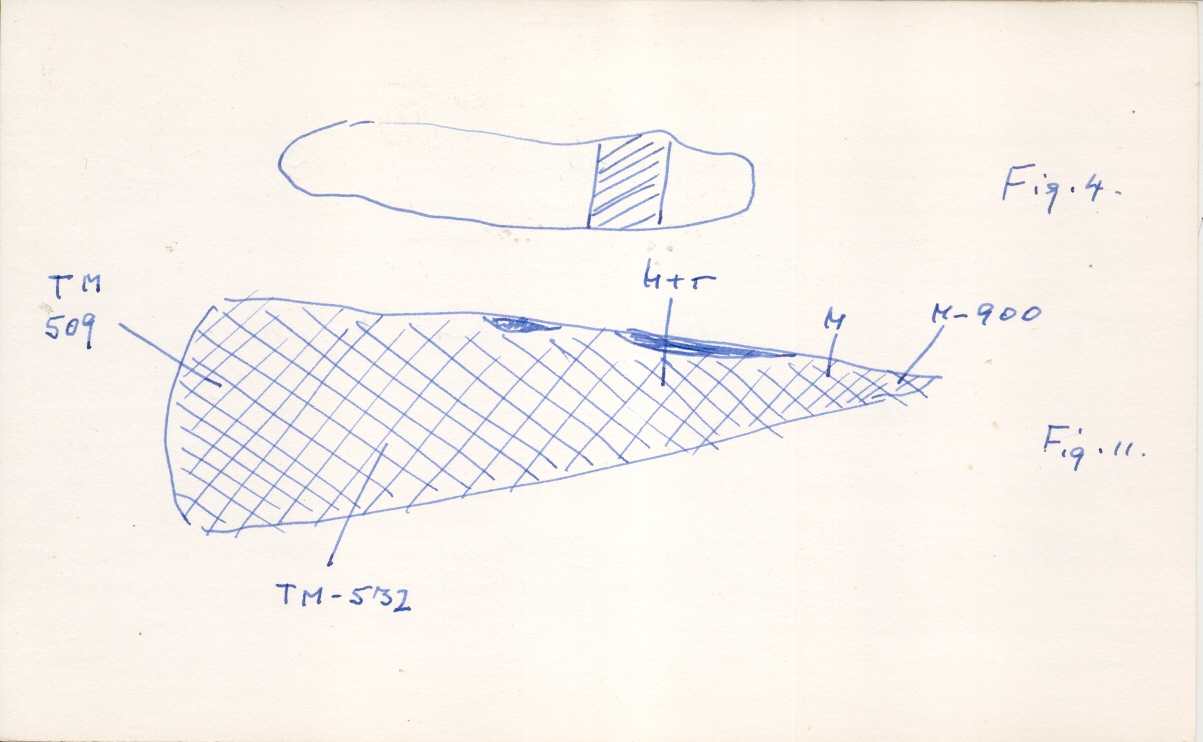 Fig.4.
TM
509
M+T
M
M-900
Fig.11.
TM-532